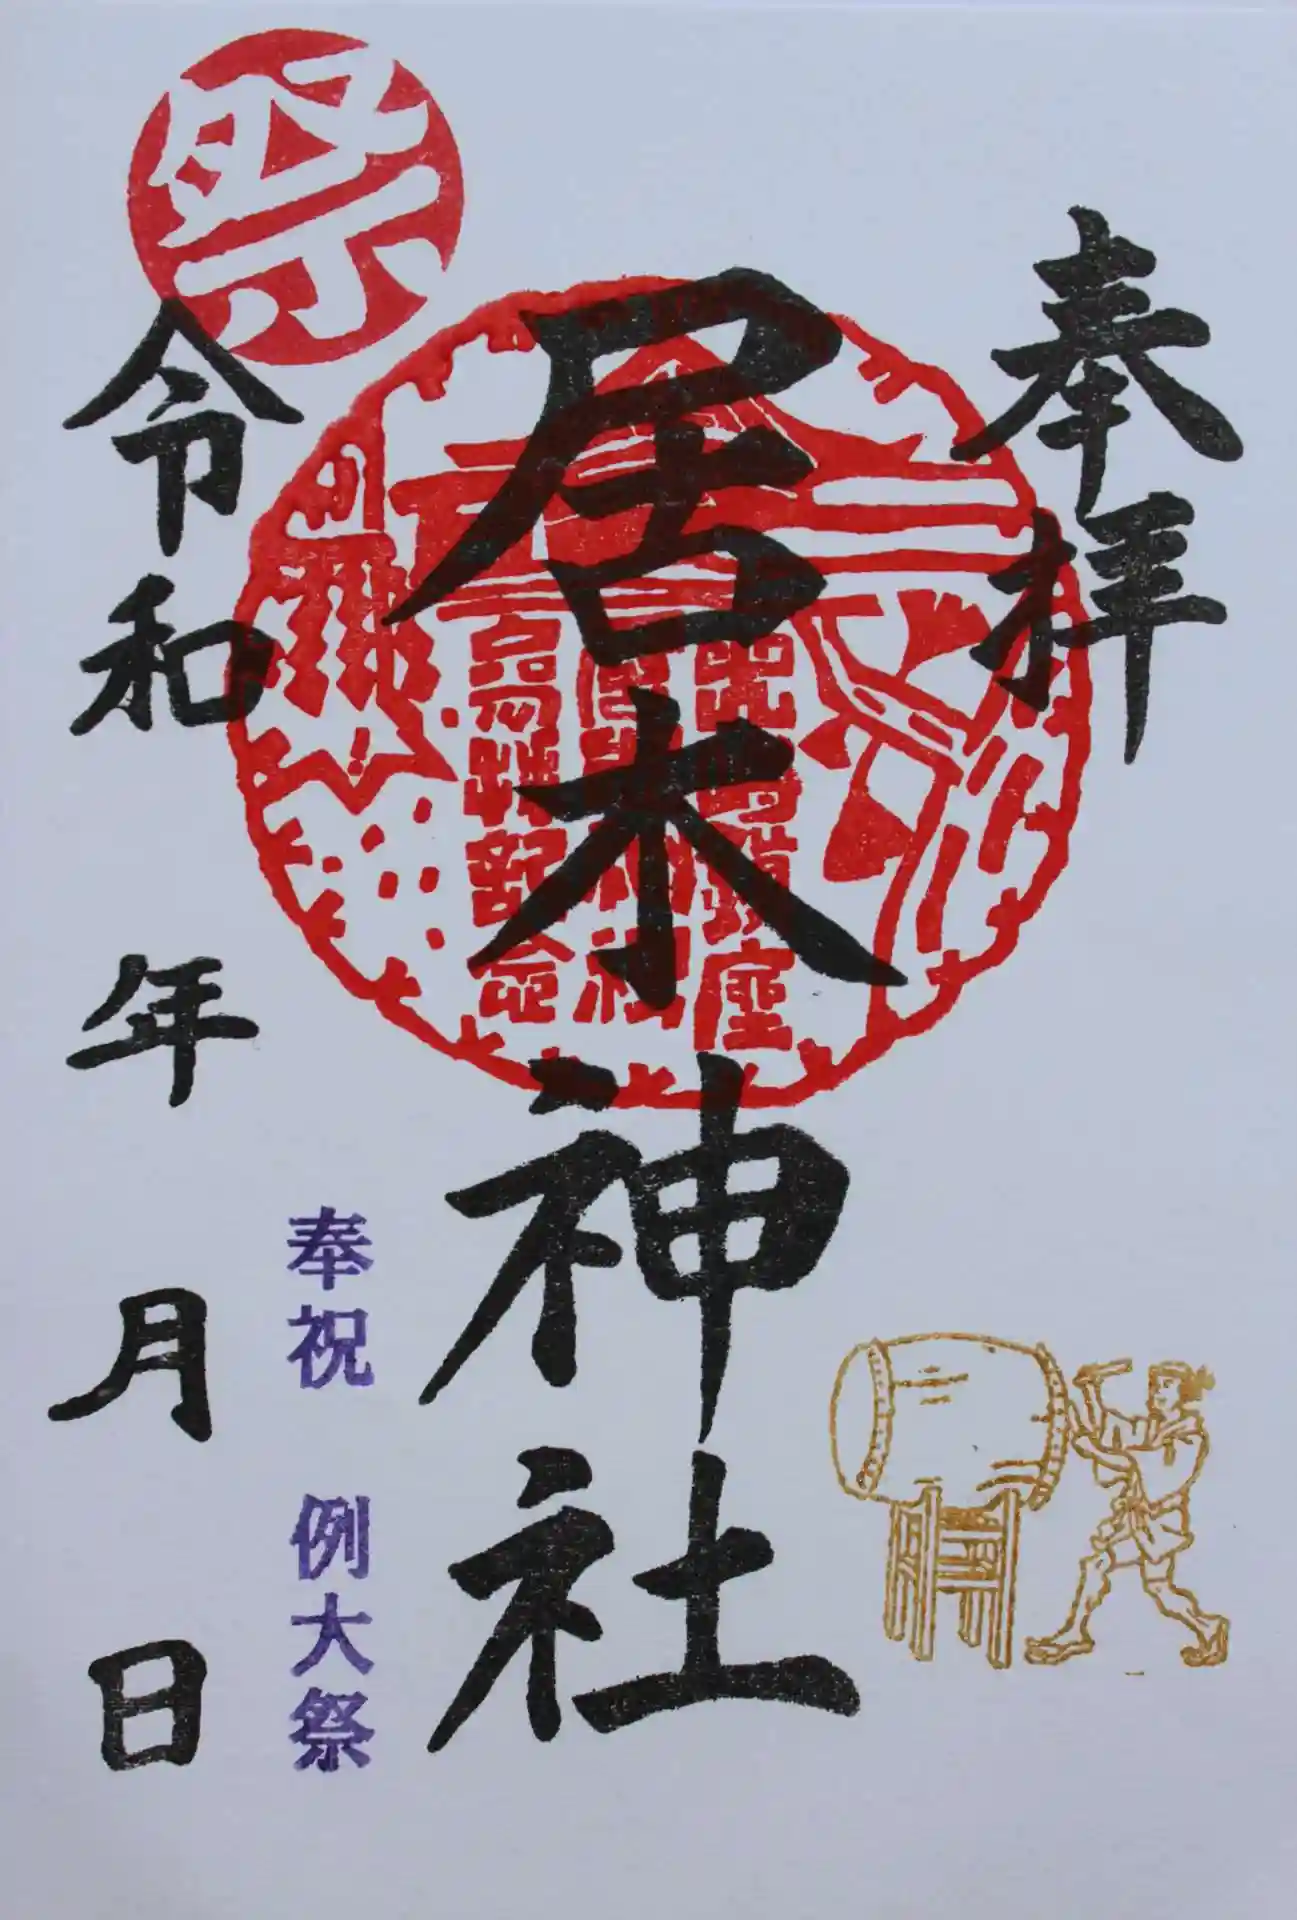 奉拝
居木神社
奉祝 例大祭
祭
令和 年 月 日